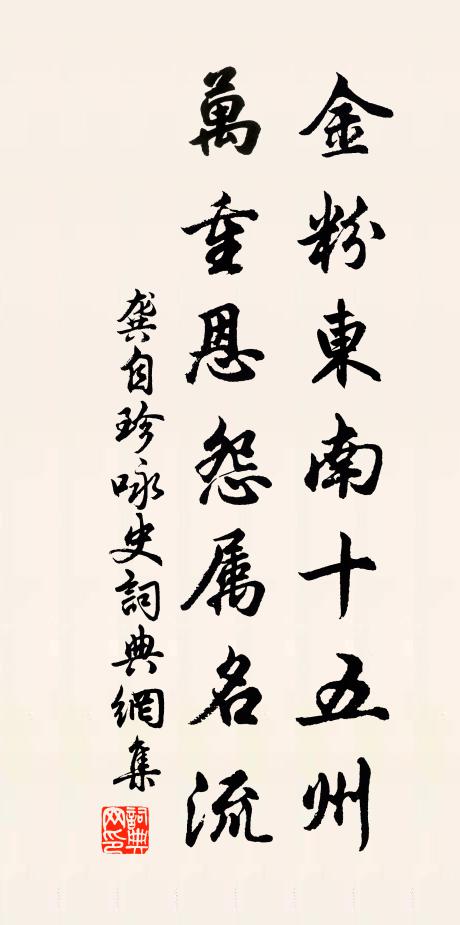 金粉東南十五州
萬重恩怨属名流
龔自珍咏史詞典網集
詞典網印